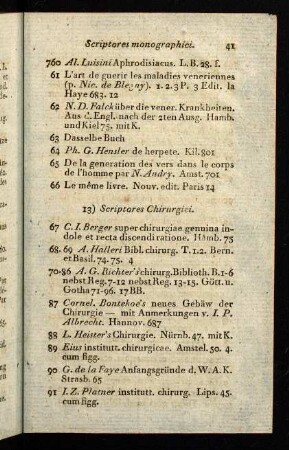 Scriptores monographici. 41
760 Al. Luisini Aphrodisiacus. L. B. 28. f.
61 L'art de guerir les maladies veneriennes
(p. Nic. de Blegny). 1. 2. 3 P. 3 Edit. la
Haye 683. 12
62 N. D. Falck über die vener. Krankheiten.
Aus d. Engl. nach der 2ten Ausg. Hamb.
und Kiel 75. mit K.
63 Dasselbe Buch
64 Ph. G. Hensler de herpete. Kil. 801
65 De la generation des vers dans le corps
de l'homme par N. Andry. Amst. 701
66 Le même livre. Nouv. edit. Paris 14
13) Scriptores Chirurgici.
67 C. I. Berger super chirurgiae genuina in-
dole et recta discendi ratione. Hamb. 75
68. 69 A. Halleri Bibl. chirurg. T. 1. 2. Bern.
et Basil. 74. 75. 4
70-86 A. G. Richter's chirurg. Biblioth. B. 1-6
nebst Reg. 7-12 nebst Reg. 13-15. Gött. u.
Gotha 71-96. 17 BB.
87 Cornel. Bontekoe's neues Gebäw der
Chirurgie — mit Anmerkungen v. I. P.
Albrecht. Hannov. 687
88 L. Heister's Chirurgie. Nürnb. 47. mit K.
89 Eius institutt. chirurgicae. Amstel. 50. 4.
cum figg.
90 G. de la Faye Anfangsgründe d. W. A. K.
Strasb. 65
91 I. Z. Platner institutt. chirurg. Lips. 45.
cum figg.